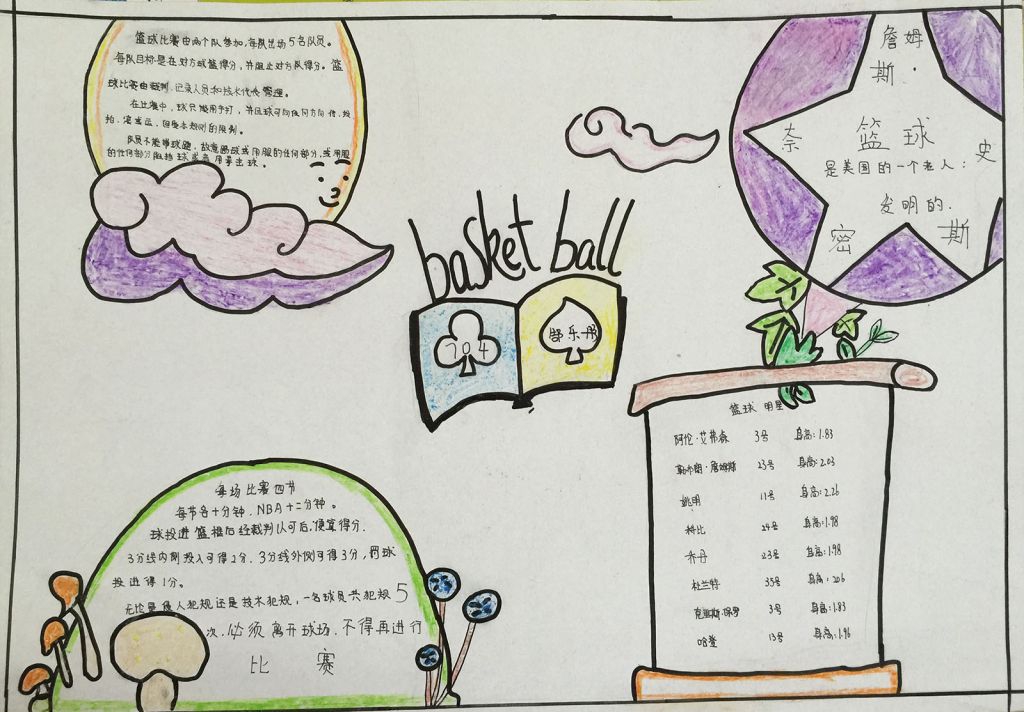 篮球比赛由两个队参加，每队出场5名队员。
每队目标是在对方球篮得分，并阻止对方队得分。篮
球比赛由裁判、记录人员和技术代表管理。
在比赛中，球只能用手打，并且球可向任何方向传、投
拍、滚或运，但受本规则的限制。
队员不能带球跑，故意踢球或用腿的任何部分，或用腿
的任何部分阻挡球或者用拳击球。
詹姆
斯·
奈 篮球 史
是美国的一个老人：
发明的.
密 斯
basket ball
704
舒乐丹
篮球 明星
阿伦·艾弗森 3号 身高:1.83
勒布朗·詹姆斯 23号 身高:2.03
姚明 11号 身高:2.26
科比 24号 身高:1.98
乔丹 23号 身高:1.98
杜兰特 35号 身高:206
克里斯·保罗 3号 身高:1.83
哈登 13号 身高:1.96
每场比赛四节
每节各十分钟，NBA十二分钟。
球投进篮框后经裁判认可后,便宜得分.
3分线内侧投入可得2分，3分线外侧可得3分，罚球
投进得1分。
无论是侵人犯规还是技术犯规，一名球员共犯规5
次，必须离开球场，不得再进行
比赛